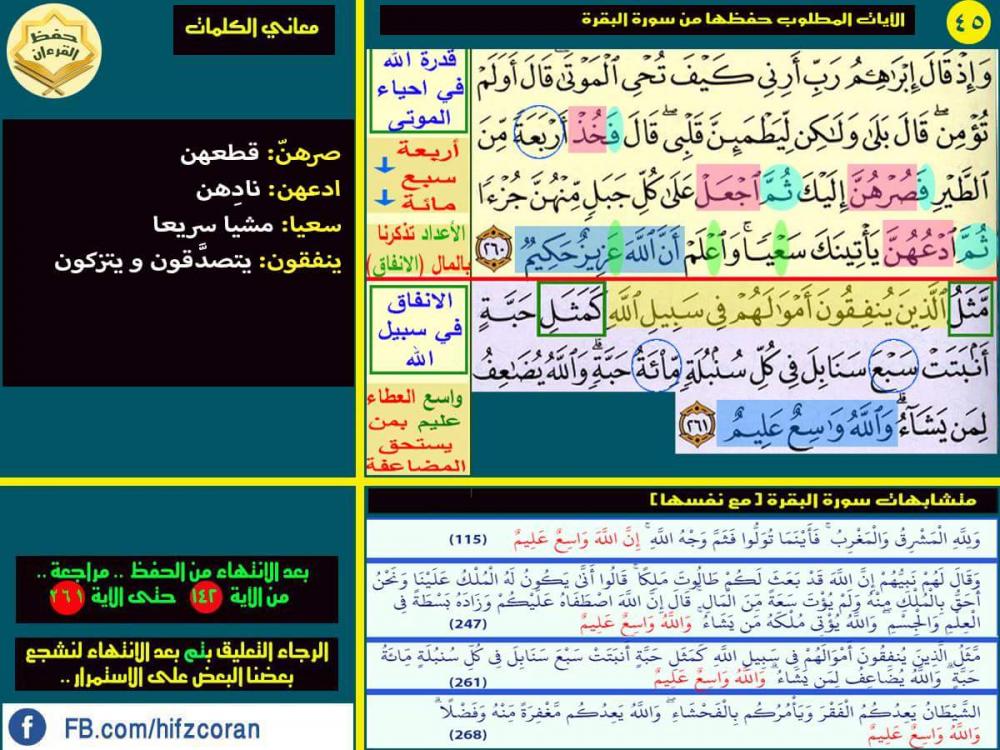 ٤٥
الايات المطلوب حفظها من سورة البقرة
معاني الكلمات
حفظ
القرءان
وَإِذْ قَالَ إِبْرَاهِـۧمُ رَبِّ أَرِنِي كَيْفَ تُحْيِ الْمَوْتَىٰ قَالَ أَوَلَمْ
تُؤْمِن قَالَ بَلَىٰ وَلَـٰكِن لِّيَطْمَئِنَّ قَلْبِي قَالَ فَخُذْ أَرْبَعَةً مِّنَ
الطَّيْرِ فَصُرْهُنَّ إِلَيْكَ ثُمَّ اجْعَلْ عَلَىٰ كُلِّ جَبَلٍ مِّنْهُنَّ جُزْءًا
ثُمَّ ادْعُهُنَّ يَأْتِينَكَ سَعْيًا ۚ وَاعْلَمْ أَنَّ اللَّهَ عَزِيزٌ حَكِيمٌ ٢٦٠
مَّثَلُ الَّذِينَ يُنفِقُونَ أَمْوَالَهُمْ فِي سَبِيلِ اللَّهِ كَمَثَلِ حَبَّةٍ
أَنبَتَتْ سَبْعَ سَنَابِلَ فِي كُلِّ سُنبُلَةٍ مِّائَةُ حَبَّةٍ ۗ وَاللَّهُ يُضَاعِفُ
لِمَن يَشَاءُ ۗ وَاللَّهُ وَاسِعٌ عَلِيمٌ ٢٦١
قدرة الله
في احياء
الموتى
أربعة
سبع
مائة
الأعداد تذكرنا
بالمال (الانفاق)
الانفاق
في سبيل
الله
واسع العطاء
عليم بمن
يستحق
المضاعفة
صرهنّ: قطعهن
ادعهن: نادِهن
سعيا: مشيا سريعا
ينفقون: يتصدَّقون و يتزكون
متشابهات سورة البقرة [مع نفسها]
وَلِلَّهِ الْمَشْرِقُ وَالْمَغْرِبُ ۚ فَأَيْنَمَا تُوَلُّوا فَثَمَّ وَجْهُ اللَّهِ ۚ إِنَّ اللَّهَ وَاسِعٌ عَلِيمٌ (115)
وَقَالَ لَهُمْ نَبِيُّهُمْ إِنَّ اللَّهَ قَدْ بَعَثَ لَكُمْ طَالُوتَ مَلِكًا ۚ قَالُوا أَنَّىٰ يَكُونُ لَهُ الْمُلْكُ عَلَيْنَا وَنَحْنُ
أَحَقُّ بِالْمُلْكِ مِنْهُ وَلَمْ يُؤْتَ سَعَةً مِّنَ الْمَالِ ۚ قَالَ إِنَّ اللَّهَ اصْطَفَاهُ عَلَيْكُمْ وَزَادَهُ بَسْطَةً فِي
الْعِلْمِ وَالْجِسْمِ ۖ وَاللَّهُ يُؤْتِي مُلْكَهُ مَن يَشَاءُ ۚ وَاللَّهُ وَاسِعٌ عَلِيمٌ (247)
مَّثَلُ الَّذِينَ يُنفِقُونَ أَمْوَالَهُمْ فِي سَبِيلِ اللَّهِ كَمَثَلِ حَبَّةٍ أَنبَتَتْ سَبْعَ سَنَابِلَ فِي كُلِّ سُنبُلَةٍ مِّائَةُ
حَبَّةٍ ۗ وَاللَّهُ يُضَاعِفُ لِمَن يَشَاءُ ۗ وَاللَّهُ وَاسِعٌ عَلِيمٌ (261)
الشَّيْطَانُ يَعِدُكُمُ الْفَقْرَ وَيَأْمُرُكُم بِالْفَحْشَاءِ ۖ وَاللَّهُ يَعِدُكُم مَّغْفِرَةً مِّنْهُ وَفَضْلًا ۗ
وَاللَّهُ وَاسِعٌ عَلِيمٌ (268)
بعد الانتهاء من الحفظ .. مراجعة ..
من الاية ١٤٢ حتى الاية ٢٦١
الرجاء التعليق بتم بعد الانتهاء لنشجع
بعضنا البعض على الاستمرار ..
FB.com/hifzcoran